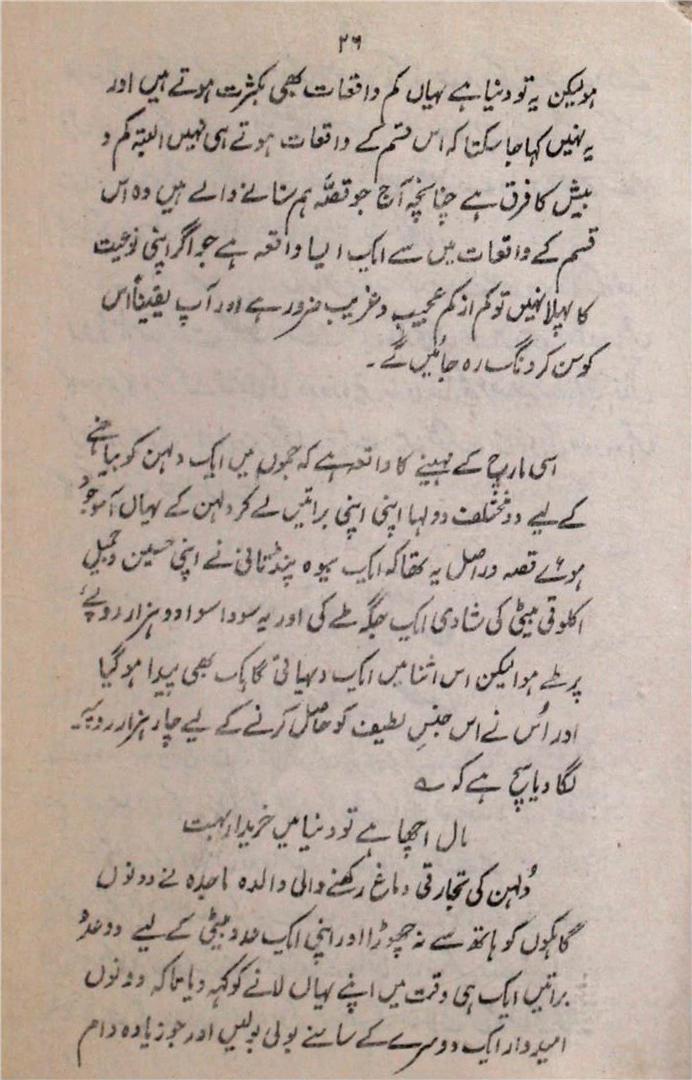 ۲۶
ہو لیکن یہ تو دنیا ہے یہاں کم واقعات بھی بکثرت ہوتے ہیں اور
یہ نہیں کہا جا سکتا کہ اس قسم کے واقعات ہوتے ہی نہیں البتہ کم و
بیش کا فرق ہے چنانچہ آج جو قصّہ ہم سنانے والے ہیں وہ اس
قسم کے واقعات میں سے ایک ایسا واقعہ ہے جو اگر اپنی نوعیت
کا پہلا نہیں تو کم از کم عجیب و غریب ضرور ہے اور آپ یقیناً اس
کو سن کر دنگ رہ جائیں گے۔
اسی مارچ کے مہینے کا واقعہ ہے کہ جموں میں ایک دلہن کو بیاہنے
کے لیے دو مختلف دولہا اپنی اپنی براتیں لے کر دلہن کے یہاں آموجود
ہوئے قصہ دراصل یہ تھا کہ ایک بیوہ پنڈتانی نے اپنی حسین و جمیل
اکلوتی بیٹی کی شادی ایک جگہ طے کی اور یہ سودا سوا دو ہزار روپے
پر طے ہوا لیکن اس اثنا میں ایک دیہاتی گاہک بھی پیدا ہو گیا
اور اُس نے اس جنسِ لطیف کو حاصل کرنے کے لیے چار ہزار روپیہ
لگا دیا سچ ہے کہ ؎
مال اچھا ہے تو دنیا میں خریدار بہت
دُلہن کی تجارتی دماغ رکھنے والی والدہ ماجدہ نے دونوں
گاہکوں کو ہاتھ سے نہ چھوڑا اور اپنی ایک عدد بیٹی کے لیے دو عدد
براتیں ایک ہی وقت میں اپنے یہاں لانے کو کہہ دیا تاکہ دونوں
امیدوار ایک دوسرے کے سامنے بولی بولیں اور جو زیادہ دام